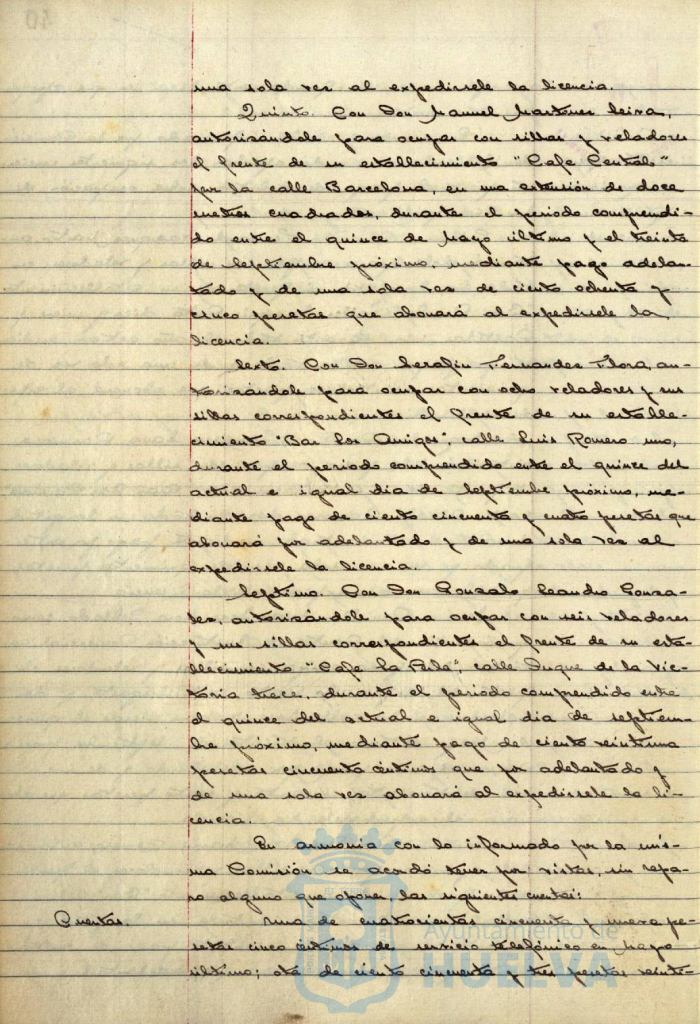 una sola vez al expedirsele la licencia.
Quinto. Con Don Manuel Martinez Leira,
autorizándole para ocupar con sillas y veladores
el frente de su establecimiento "Cafe Central"
por la calle Barcelona, en una extensión de doce
metros cuadrados, durante el periodo comprendi-
do entre el quince de Mayo último y el treinta
de Septiembre próximo, mediante pago adelan-
tado y de una sola vez de ciento ochenta y
cinco pesetas que abonará al expedirsele la
licencia.
Sexto. Con Don Serafin Fernandez Flora, au-
torizándole para ocupar con ocho veladores y sus
sillas correspondientes el frente de su estable-
cimiento "Bar los Amigos", calle Luis Romero uno,
durante el periodo comprendido entre el quince del
actual e igual dia de Septiembre próximo, me-
diante pago de ciento cincuenta y cuatro pesetas que
abonará por adelantado y de una sola vez al
expedirsele la licencia.
Septimo. Con Don Gonzalo Leandro Gonza-
lez, autorizándole para ocupar con seis veladores
y sus sillas correspondientes el frente de su esta-
blecimiento "Cafe La Perla", calle Duque de la Vic-
toria trece, durante el periodo comprendido entre
el quince del actual e igual dia de septiem-
bre próximo, mediante pago de ciento veintiuna
pesetas cincuenta céntimos que por adelantado y
de una sola vez abonará al expedirsele la li-
cencia.
En armonia con lo informado por la mis-
ma Comisión se acordó tener por vistas, sin repa-
ro alguno que oponer, las siguientes cuentas:
Cuentas. Una de cuatrocientas cincuenta y nueve pe-
setas cinco céntimos de servicio telefónico en Mayo
último; otra de ciento cincuenta y tres pesetas veinti-
Ayuntamiento de
HUELVA